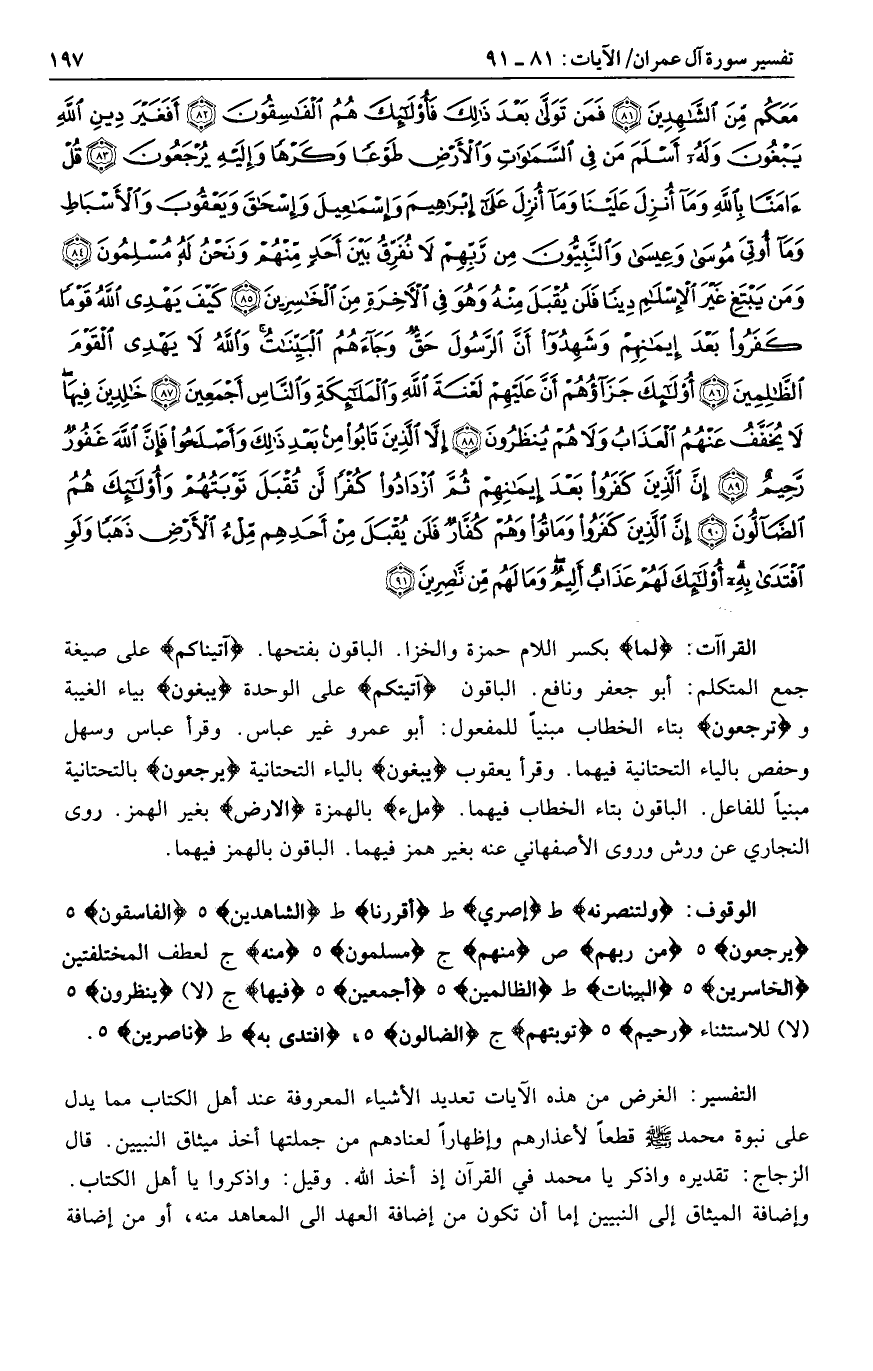 تفسير سورة آل عمران/ الآيات: ٨١ ـ ٩١ ١٩٧
مَعَكُم مِّنَ ٱلشَّٰهِدِينَ ﴿٨١﴾ فَمَن تَوَلَّىٰ بَعْدَ ذَٰلِكَ فَأُو۟لَٰٓئِكَ هُمُ ٱلْفَٰسِقُونَ ﴿٨٢﴾ أَفَغَيْرَ دِينِ ٱللَّهِ
يَبْغُونَ وَلَهُۥٓ أَسْلَمَ مَن فِى ٱلسَّمَٰوَٰتِ وَٱلْأَرْضِ طَوْعًا وَكَرْهًا وَإِلَيْهِ يُرْجَعُونَ ﴿٨٣﴾ قُلْ
ءَامَنَّا بِٱللَّهِ وَمَآ أُنزِلَ عَلَيْنَا وَمَآ أُنزِلَ عَلَىٰٓ إِبْرَٰهِيمَ وَإِسْمَٰعِيلَ وَإِسْحَٰقَ وَيَعْقُوبَ وَٱلْأَسْبَاطِ
وَمَآ أُوتِىَ مُوسَىٰ وَعِيسَىٰ وَٱلنَّبِيُّونَ مِن رَّبِّهِمْ لَا نُفَرِّقُ بَيْنَ أَحَدٍ مِّنْهُمْ وَنَحْنُ لَهُۥ مُسْلِمُونَ ﴿٨٤﴾
وَمَن يَبْتَغِ غَيْرَ ٱلْإِسْلَٰمِ دِينًا فَلَن يُقْبَلَ مِنْهُ وَهُوَ فِى ٱلْأَخِرَةِ مِنَ ٱلْخَٰسِرِينَ ﴿٨٥﴾ كَيْفَ يَهْدِى ٱللَّهُ قَوْمًا
كَفَرُوا۟ بَعْدَ إِيمَٰنِهِمْ وَشَهِدُوٓا۟ أَنَّ ٱلرَّسُولَ حَقٌّ وَجَآءَهُمُ ٱلْبَيِّنَٰتُ وَٱللَّهُ لَا يَهْدِى ٱلْقَوْمَ
ٱلظَّٰلِمِينَ ﴿٨٦﴾ أُو۟لَٰٓئِكَ جَزَآؤُهُمْ أَنَّ عَلَيْهِمْ لَعْنَةَ ٱللَّهِ وَٱلْمَلَٰٓئِكَةِ وَٱلنَّاسِ أَجْمَعِينَ ﴿٨٧﴾ خَٰلِدِينَ فِيهَا
لَا يُخَفَّفُ عَنْهُمُ ٱلْعَذَابُ وَلَا هُمْ يُنظَرُونَ ﴿٨٨﴾ إِلَّا ٱلَّذِينَ تَابُوا۟ مِنۢ بَعْدِ ذَٰلِكَ وَأَصْلَحُوا۟ فَإِنَّ ٱللَّهَ غَفُورٌ
رَّحِيمٌ ﴿٨٩﴾ إِنَّ ٱلَّذِينَ كَفَرُوا۟ بَعْدَ إِيمَٰنِهِمْ ثُمَّ ٱزْدَادُوا۟ كُفْرًا لَّن تُقْبَلَ تَوْبَتُهُمْ وَأُو۟لَٰٓئِكَ هُمُ
ٱلضَّآلُّونَ ﴿٩٠﴾ إِنَّ ٱلَّذِينَ كَفَرُوا۟ وَمَاتُوا۟ وَهُمْ كُفَّارٌ فَلَن يُقْبَلَ مِنْ أَحَدِهِم مِّلْءُ ٱلْأَرْضِ ذَهَبًا وَلَوِ
ٱفْتَدَىٰ بِهِۦٓ أُو۟لَٰٓئِكَ لَهُمْ عَذَابٌ أَلِيمٌ وَمَا لَهُم مِّن نَّٰصِرِينَ ﴿٩١﴾
القراآت: ﴿لما﴾ بكسر اللام حمزة والخزا. الباقون بفتحها. ﴿آتيناكم﴾ على صيغة
جمع المتكلم: أبو جعفر ونافع. الباقون ﴿آتيتكم﴾ على الوحدة ﴿يبغون﴾ بياء الغيبة
و ﴿ترجعون﴾ بتاء الخطاب مبنياً للمفعول: أبو عمرو غير عباس. وقرأ عباس وسهل
وحفص بالياء التحتانية فيهما. وقرأ يعقوب ﴿يبغون﴾ بالياء التحتانية ﴿يرجعون﴾ بالتحتانية
مبنياً للفاعل. الباقون بتاء الخطاب فيهما. ﴿ملء﴾ بالهمزة ﴿الارض﴾ بغير الهمز. روى
النجاري عن ورش وروى الأصفهاني عنه بغير همز فيهما. الباقون بالهمز فيهما.
الوقوف: ﴿ولتنصرنه﴾ ط ﴿إصري﴾ ط ﴿أقررنا﴾ ط ﴿الشاهدين﴾ ٥ ﴿الفاسقون﴾ ٥
﴿يرجعون﴾ ٥ ﴿من ربهم﴾ ص ﴿منهم﴾ ج ﴿مسلمون﴾ ٥ ﴿منه﴾ ج لعطف المختلفتين
﴿الخاسرين﴾ ٥ ﴿البينات﴾ ط ﴿الظالمين﴾ ٥ ﴿أجمعين﴾ ٥ ﴿فيها﴾ ج (لا) ﴿ينظرون﴾ ٥
(لا) للاستثناء ﴿رحيم﴾ ٥ ﴿توبتهم﴾ ج ﴿الضالون﴾ ٥، ﴿افتدى به﴾ ط ﴿ناصرين﴾ ٥.
التفسير: الغرض من هذه الآيات تعديد الأشياء المعروفة عند أهل الكتاب مما يدل
على نبوة محمد ﷺ قطعاً لأعذارهم وإظهاراً لعنادهم من جملتها أخذ ميثاق النبيين. قال
الزجاج: تقديره واذكر يا محمد في القرآن إذ أخذ الله. وقيل: واذكروا يا أهل الكتاب.
وإضافة الميثاق إلى النبيين إما أن تكون من إضافة العهد الى المعاهد منه، أو من إضافة